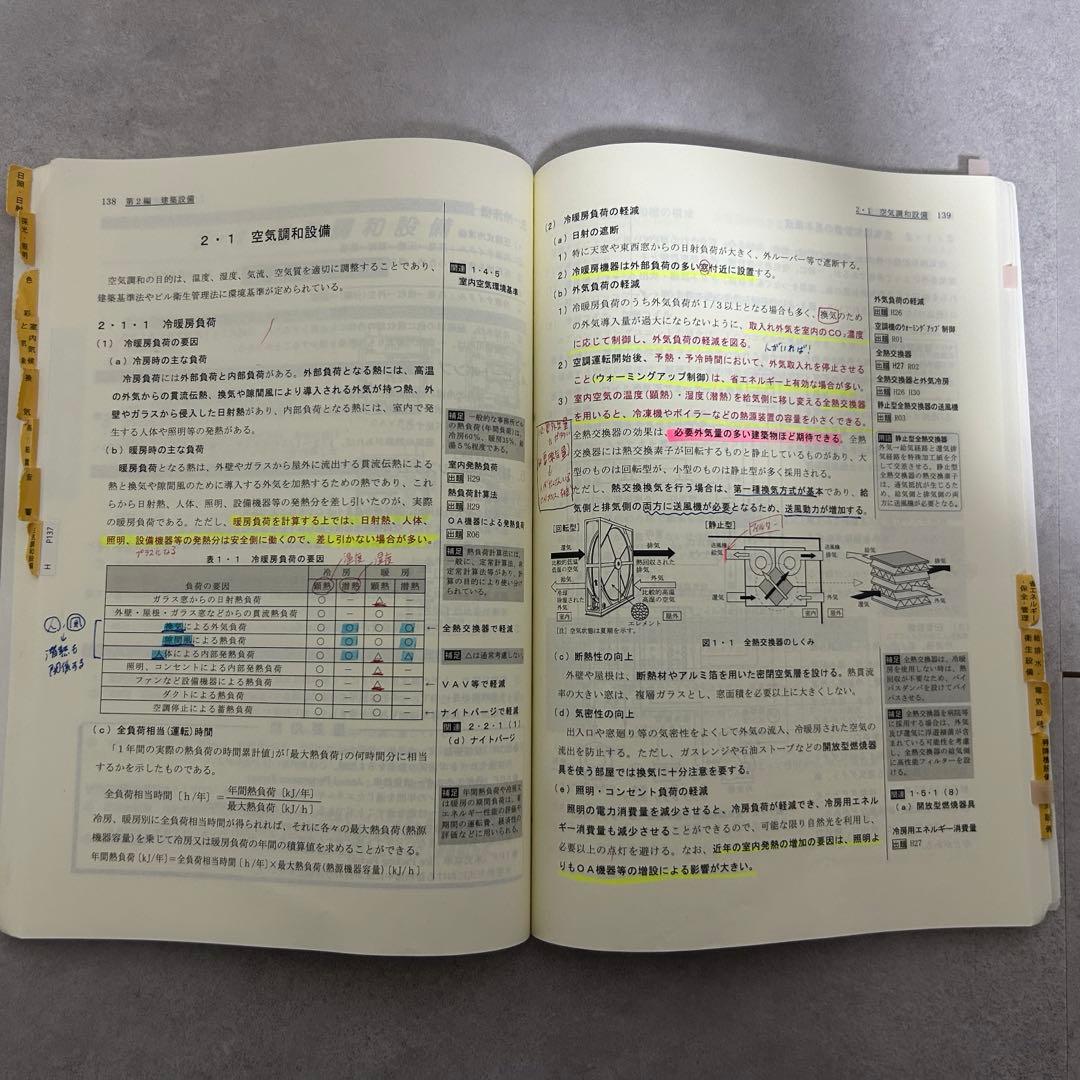 138 第2編 建築設備
2・1 空気調和設備
空気調和の目的は、温度、湿度、気流、空気質を適切に調整することであり、
建築基準法やビル衛生管理法に環境基準が定められている。
関連 1・4・5
室内空気環境基準
2・1・1 冷暖房負荷
(1) 冷暖房負荷の要因
(a) 冷房時の主な負荷
冷房負荷には外部負荷と内部負荷がある。外部負荷となる熱には、高温
の外気からの貫流伝熱、換気や隙間風により導入される外気が持つ熱、外
壁やガラスから侵入した日射熱があり、内部負荷となる熱には、室内で発
生する人体や照明等の発熱がある。
(b) 暖房時の主な負荷
暖房負荷となる熱は、外壁やガラスから屋外に流出する貫流伝熱による
熱と換気や隙間風のために導入する外気を加熱するための熱であり、これ
らから日射熱、人体、照明、設備機器等の発熱分を差し引いたのが、実際
の暖房負荷である。ただし、暖房負荷を計算する上では、日射熱、人体、
照明、設備機器等の発熱分は安全側に働くので、差し引かない場合が多い。
プラスになる
補足 一般的な事務所ビル
の熱負荷(年間負荷)は、
冷房60%、暖房35%、給
湯5%程度である。
室内発熱負荷
出題 H29
熱負荷計算法
出題 H29
OA機器による発熱負荷
出題 R06
補足 熱負荷計算法には、
一般に、定常計算法、非
定常計算法等があり、計
算の目的により使い分け
られている。
表1・1 冷暖房負荷の要因
温度 湿度
負荷の要因 冷房 暖房
顕熱 潜熱 顕熱 潜熱
ガラス窓からの日射熱負荷 ○ − △ −
外壁・屋根・ガラス窓などからの貫流熱負荷 ○ − ○ −
換気による外気負荷 ○ ○ ○ ○ ← 全熱交換器で軽減
隙間風による熱負荷 ○ ○ ○ ○
人体による内部発熱負荷 ○ ○ △ △
照明、コンセントによる内部発熱負荷 ○ − △ −
ファンなど設備機器による熱負荷 ○ − △ − ← VAV等で軽減
ダクトによる熱負荷 ○ − ○ −
空調停止による蓄熱負荷 ○ − ○ − ← ナイトパージで軽減
補足 △は通常考慮しない。
人、風
↓
潜熱も
関係する
関連 2・2・1(1)
(d) ナイトパージ
(c) 全負荷相当(運転)時間
「1年間の実際の熱負荷の時間累計値」が「最大熱負荷」の何時間分に相当
するかを示したものである。
全負荷相当時間 [h/年] = 年間熱負荷 [kJ/年]
最大熱負荷 [kJ/h]
冷房、暖房別に全負荷相当時間が得られれば、それに各々の最大熱負荷(熱源
機器容量)を乗じて冷房又は暖房負荷の年間の積算値を求めることができる。
年間熱負荷 [kJ/年]=全負荷相当時間 [h/年]×最大熱負荷(熱源機器容量) [kJ/h]
補足 年間熱負荷や冷房又
は暖房の期間負荷は、省
エネルギー性能の評価や
期間の運転費、経済性の
評価などに用いられる。
2・1 空気調和設備 139
(2) 冷暖房負荷の軽減
(a) 日射の遮断
1) 特に天窓や東西窓からの日射負荷が大きく、外ルーバー等で遮断する。
2) 冷暖房機器は外部負荷の多い窓付近に設置する。
(b) 外気負荷の軽減
1) 冷暖房負荷のうち外気負荷が1/3以上となる場合も多く、換気のため
の外気導入量が過大にならないように、取入れ外気を室内のCO₂濃度
に応じて制御し、外気負荷の軽減を図る。
人がいれば!
2) 空調運転開始後、予熱・予冷時間において、外気取入れを停止させる
こと(ウォーミングアップ制御)は、省エネルギー上有効な場合が多い。
3) 室内空気の温度(顕熱)・湿度(潜熱)を給気側に移し変える全熱交換器
を用いると、冷凍機やボイラーなどの熱源装置の容量を小さくできる。
全熱交換器の効果は、必要外気量の多い建築物ほど期待できる。全熱
交換器には熱交換素子が回転するものと静止しているものがあり、大
型のものは回転型が、小型のものは静止型が多く採用される。
ただし、熱交換換気を行う場合は、第一種換気方式が基本であり、給
気側と排気側の両方に送風機が必要となるため、送風動力が増加する。
外気負荷の軽減
出題 H26
空調機のウォーミングアップ制御
出題 R01
全熱交換器
出題 H27 R02
全熱交換器と外気冷房
出題 H26 H30
静止型全熱交換器の送風機
出題 R03
用語 静止型全熱交換器
外気→給気経路と還気排
気経路を特殊加工紙を介
して交差させる。静止型
全熱交換器の熱交換素子
は、通気抵抗が生じるた
め、給気側と排気側の両
方に送風機が必要。
[回転型] [静止型] フィルター
還気
比較的低温
低湿の空気
給気
冷却
除湿された
外気
排気
熱回収された
排気
外気
比較的高温
高湿の空気
室内
屋外
エレメント
送風機
給気
還気
送風機
排気
外気
室内 屋外
給気
排気
還気
外気
[注] 空気状態は夏期を示す。
図1・1 全熱交換器のしくみ
(c) 断熱性の向上
外壁や屋根は、断熱材やアルミ箔を用いた密閉空気層を設ける。熱貫流
率の大きい窓は、複層ガラスとし、窓面積を必要以上に大きくしない。
(d) 気密性の向上
出入口や窓廻り等の気密性をよくして外気の流入、冷暖房された空気の
流出を防止する。ただし、ガスレンジや石油ストーブなどの開放型燃焼器
具を使う部屋では換気に十分注意を要する。
(e) 照明・コンセント負荷の軽減
照明の電力消費量を減少させると、冷房負荷が軽減でき、冷房用エネル
ギー消費量も減少させることができるので、可能な限り自然光を利用し、
必要以上の点灯を避ける。なお、近年の室内発熱の増加の要因は、照明よ
りもOA機器等の増設による影響が大きい。
補足 全熱交換器は、冷暖
房を使用しない時は、熱
回収が不要なため、バイ
パスダンパを設けてバイ
パスさせる。
補足 全熱交換器を病院等
に採用する場合は、外気
及び還気に浮遊細菌が含
まれている可能性を考慮
し、全熱交換器の給気側
に高性能フィルターを設
ける。
関連 1・5・1(8)
(a) 開放型燃焼器具
冷房用エネルギー消費量
出題 H27
P137
H